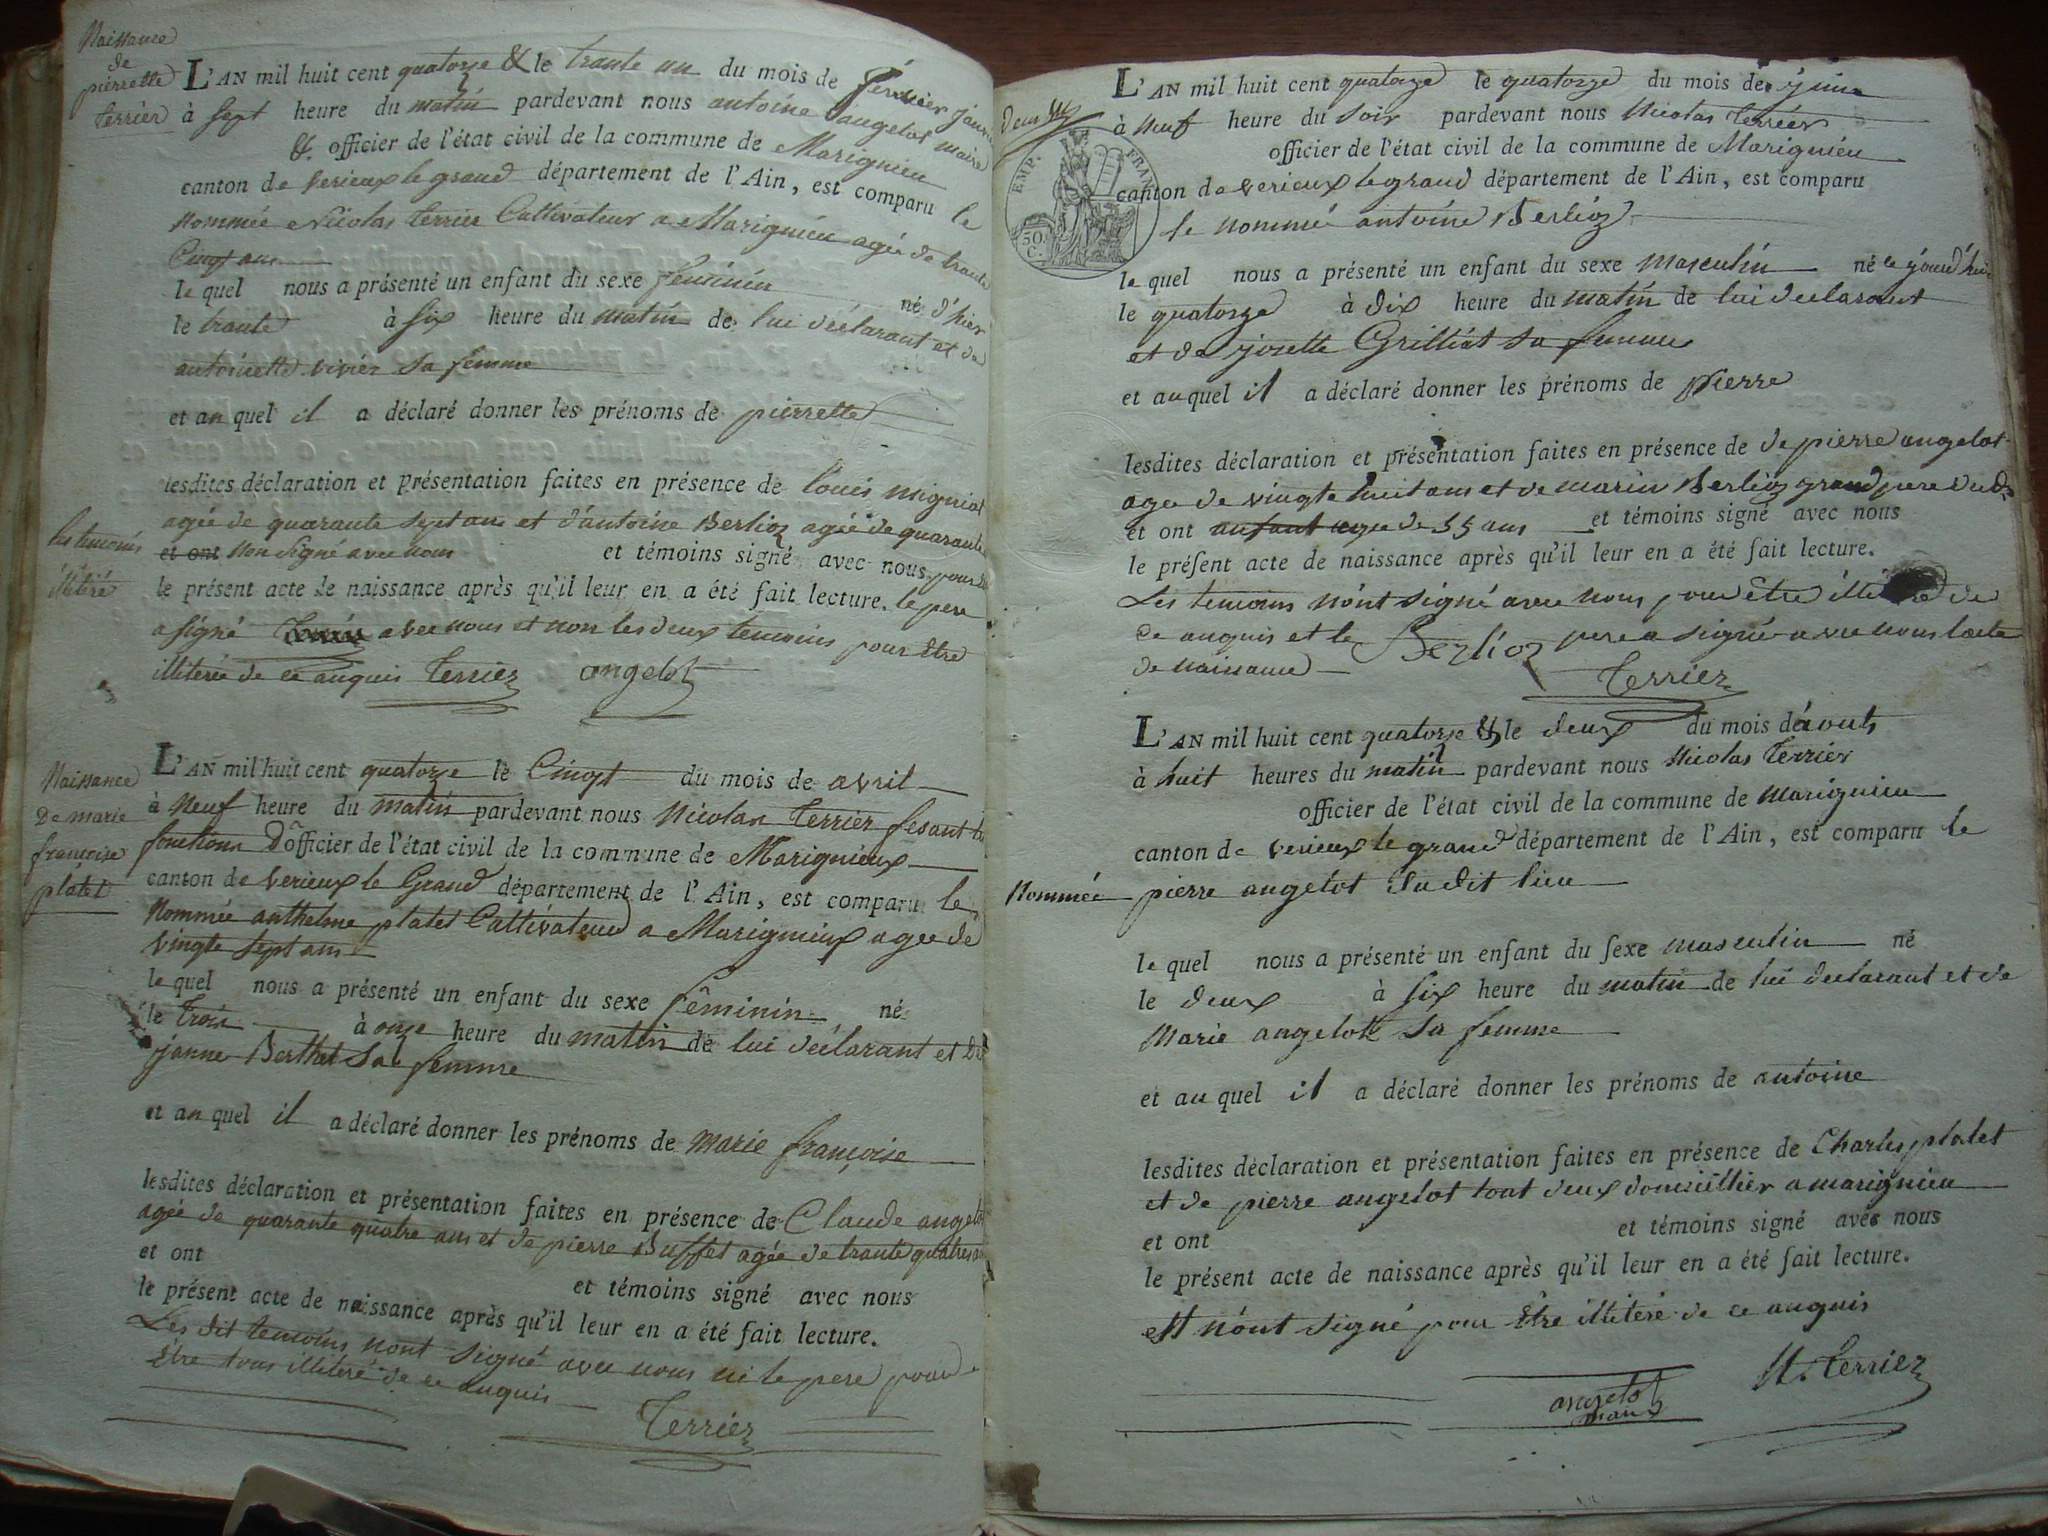 Naissance
de
pierrette
terrier
L'AN mil huit cent quatorze & le trante un du mois de janvier
à sept heure du matin pardevant nous antoine angelot maire
&. officier de l'état civil de la commune de Marignieu
canton de verieux le grand département de l'Ain, est comparu le
nommée Nicolas terrier Cultivateur a Marignieu agée de trante
Cinqt ans
le quel nous a présenté un enfant du sexe feminin né d'hier
le trante à six heure du matin de lui déclarant et de
antoinette vivier sa femme
et au quel il a déclaré donner les prénoms de pierrette
lesdites déclaration et présentation faites en présence de louis migniot
agée de quarante sept ans et d'antoine Berlioz agée de quarante
et ont non signé avec nous et témoins signé avec nous pour
les temoins
illitéré
le présent acte de naissance après qu'il leur en a été fait lecture. le pere
a signé avec nous et non les deux temoins pour être
illiterée de ce anquis terrier angelot
Naissance
De marie
françoise
platet
L'AN mil huit cent quatorze le Cinqt du mois de avril
à neuf heure du matin pardevant nous Nicolas terrier fesant
fonctions D officier de l'état civil de la commune de Marignieux
canton de verieux le Grand département de l'Ain, est comparu le
Nommée anthelme platet Cultivateur a Marignieux agee de
vingte sept ans
le quel nous a présenté un enfant du sexe fêminin né
le trois à onze heure du matin de lui déclarant et De
janne Berthet Sa femme
et au quel il a déclaré donner les prénoms de marie françoise
lesdites déclaration et présentation faites en présence de Claude angelot
agée de quarante quatre ans et de pierre Buffet agée de trante quatre ans
et ont et témoins signé avec nous
le présent acte de naissance après qu'il leur en a été fait lecture.
Les dit temoins nont signé avec nous ni le pere pour
Être tous illiteré de ce anquis
Terrier
L'AN mil huit cent quatorze le quatorze du mois de juin
à neuf heure du soir pardevant nous Nicolas terrier
officier de l'état civil de la commune de Marignieu
EMP. FRAN
50
C.
canton de verieux le grand département de l'Ain, est comparu
le nommé antoine Berlioz
le quel nous a présenté un enfant du sexe masculin né le jourd'hui
le quatorze à dix heure du matin de lui declarant
et de josette Grilliet sa femme
et au quel il a déclaré donner les prénoms de pierre
lesdites déclaration et présentation faites en présence de de pierre angelot
agee de vingte huit ans et de marin Berlioz grand pere
et ont enfant agee de 55 ans et témoins signé avec nous
le présent acte de naissance après qu'il leur en a été fait lecture.
Les temoins n'ont signé avec nous pour être de
ce anquis et le pere a signé avec nous lacte
Berlioz
de naissance
Terrier
L'AN mil huit cent quatorze & le deux du mois de aout
à huit heures du matin pardevant nous Nicolas terrier
officier de l'état civil de la commune de marignieu
canton de verieux le grand département de l'Ain, est comparu le
Nommée pierre angelot du dit lieu
le quel nous a présenté un enfant du sexe masculin né
le deux à six heure du matin de lui declarant et de
Marie angelot sa femme
et au quel il a déclaré donner les prénoms de antoine
lesdites déclaration et présentation faites en présence de Charles platet
et de pierre angelot tout deux domicillier a marignieu
et ont et témoins signé avec nous
le présent acte de naissance après qu'il leur en a été fait lecture.
et n'ont signé pour Être illiteré de ce anquis
angelot
N. terrier